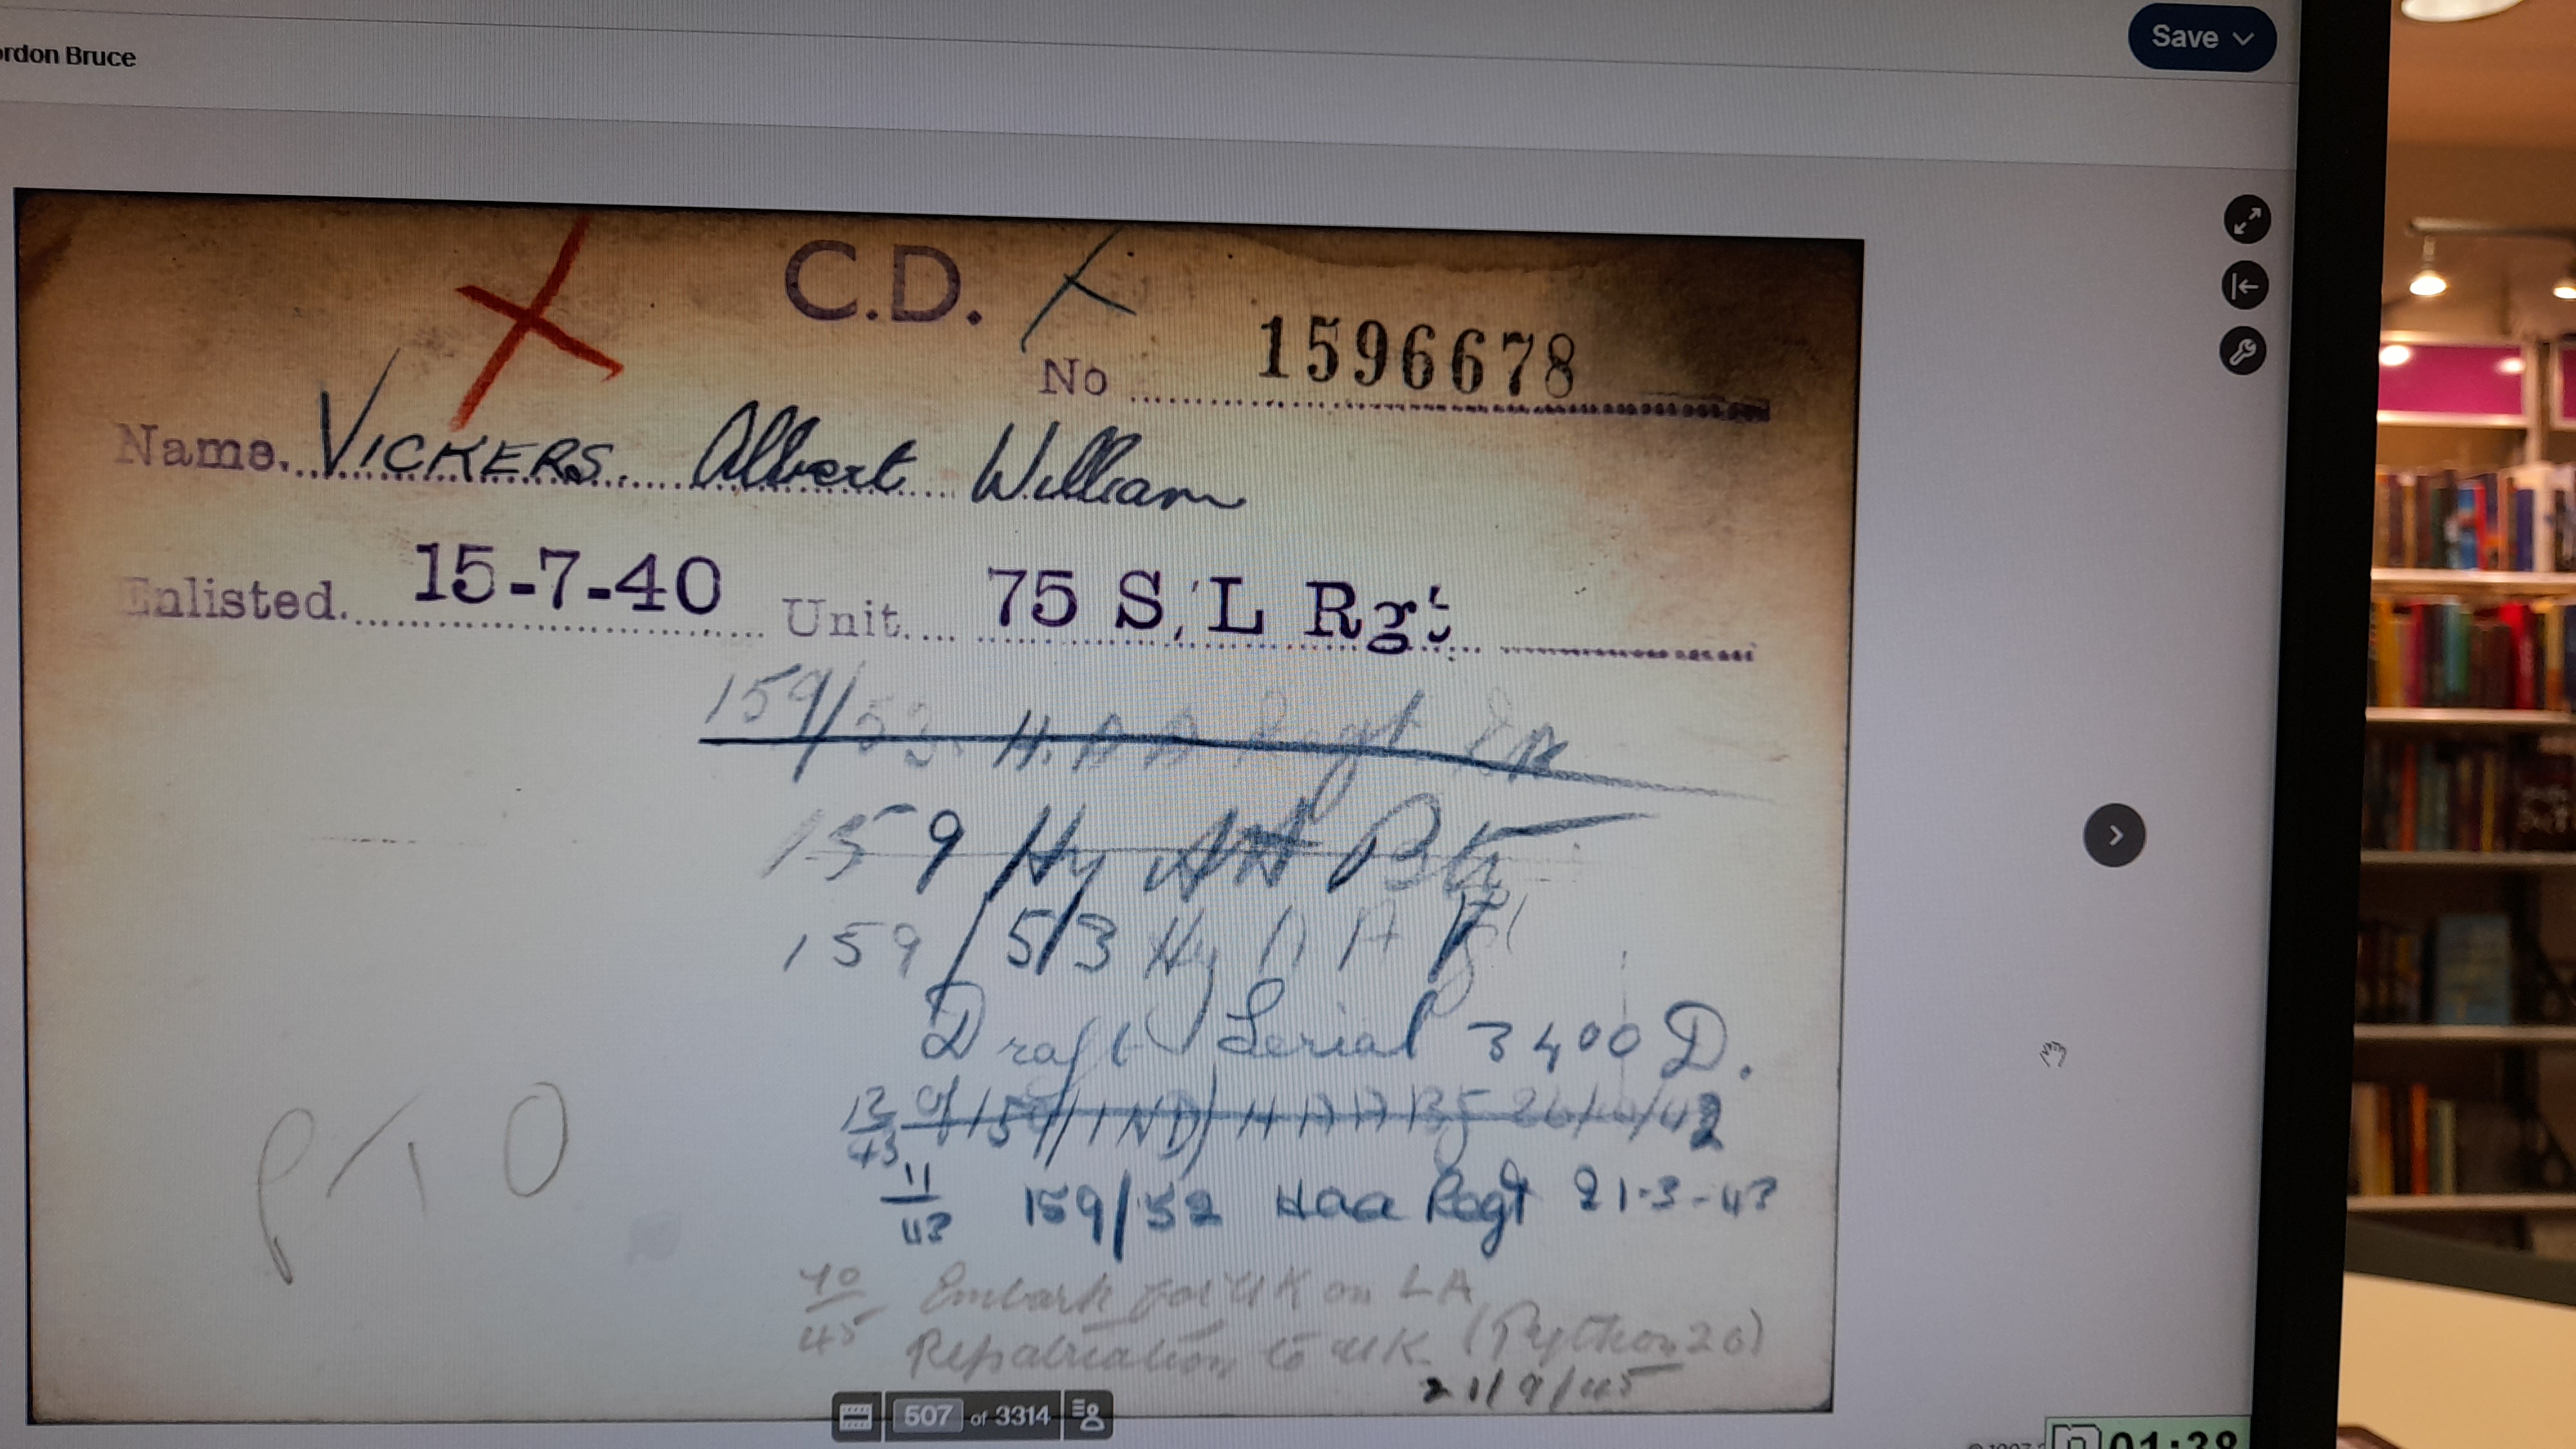 ordon Bruce
Save
C.D.
No 1596678
Name. VICKERS. Albert William
Enlisted. 15-7-40 Unit. 75 S/L Rgt
159/52. H.A.A Regt RA
159 Hy AA Bty
159/53 Hy A A
Draft Serial 3400 D.
13/43 159/(IND) HAA 26/10/42
11/43 159/52 Haa Regt 21-3-43
PTO
40/45 Embark for UK on LA
Repatriation to UK. (Python 26)
21/9/45
507 of 3314
01:38